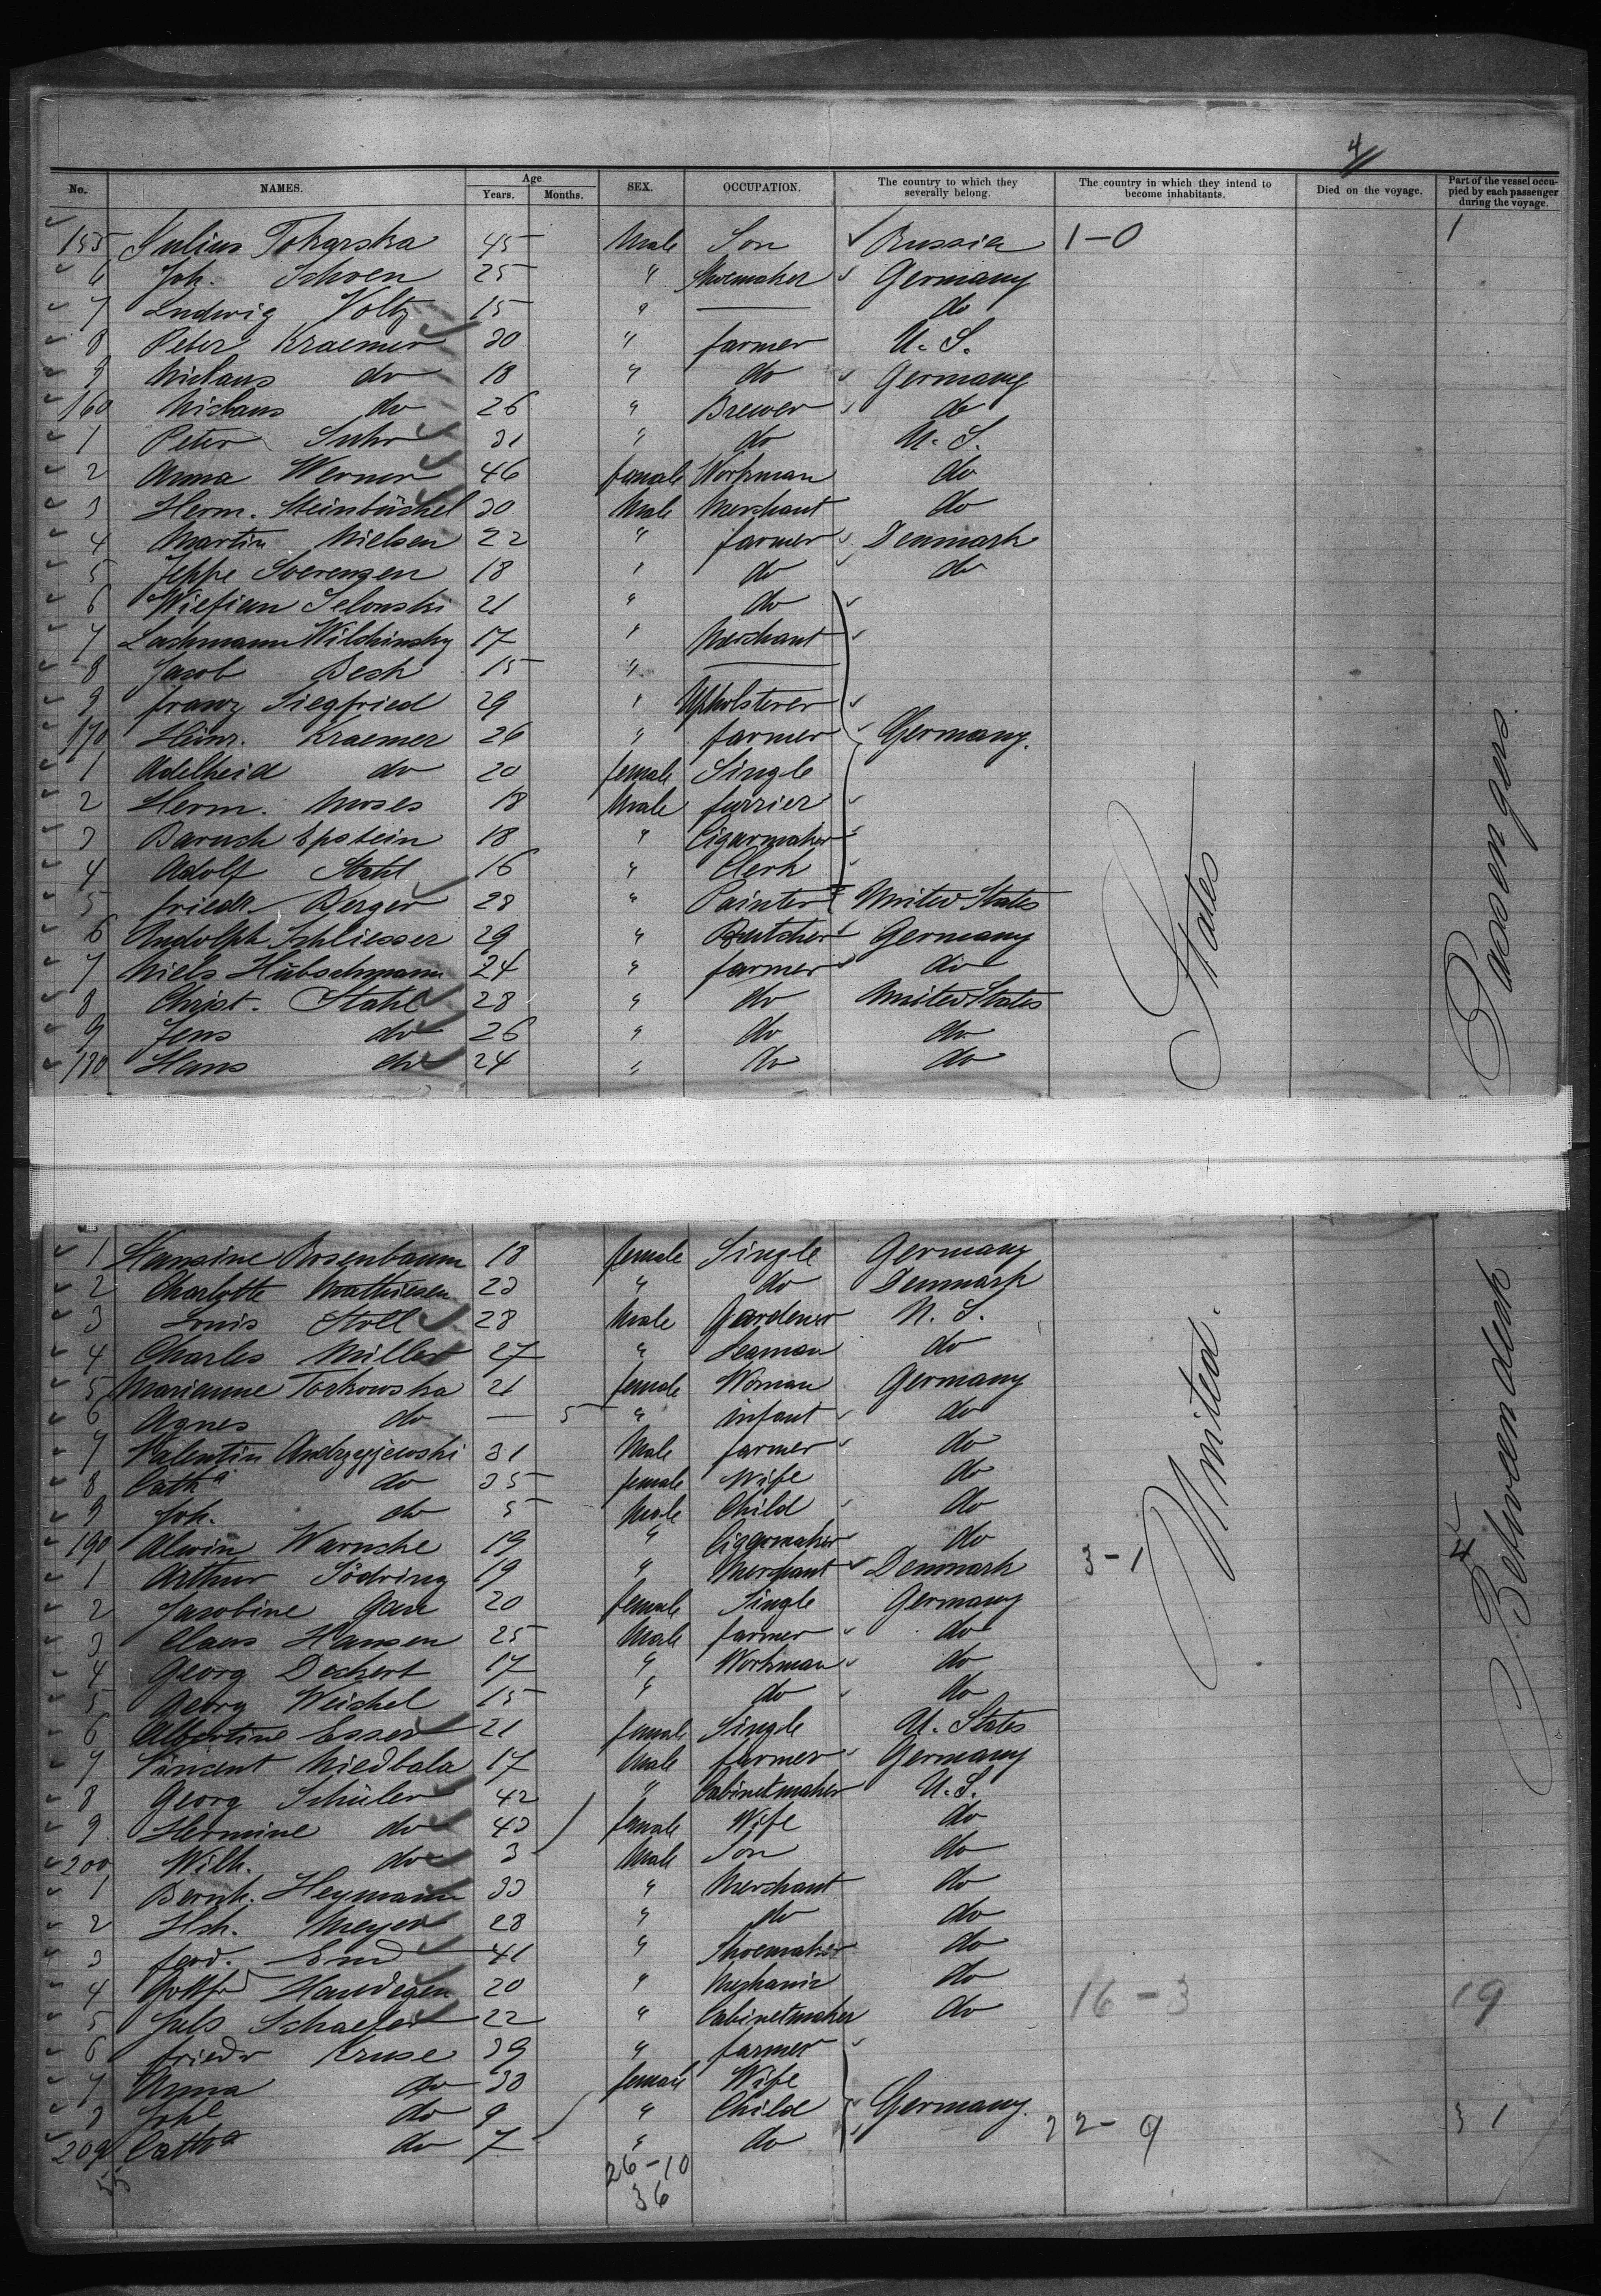 4
No. NAMES. Age Years. Months. SEX. OCCUPATION. The country to which they severally belong. The country in which they intend to become inhabitants. Died on the voyage. Part of the vessel occupied by each passenger during the voyage.
155 Julius Tokarska 45 Male Son Russia 1-0 1
6 Joh. Schoen 25 " Shoemaker Germany
7 Ludwig Voltz 15 " — do
8 Peter Kraemer 30 " farmer U. S.
9 Niclaus do 18 " do Germany
160 Niclaus do 26 " Brewer do
1 Peter Suhr 31 " do U. S.
2 Anna Werner 46 female Workman do
3 Herm. Steinbüchel 30 Male Merchant do
4 Martin Nielsen 22 " farmer Denmark
5 Jeppe Soerensen 18 " do do
6 Selonski 21 " do
7 Lachmann Wilchinsky 17 " Merchant
8 Jacob Besh 15 " —
9 franz Siegfried 29 " Upholsterer
170 Heinr. Kraemer 26 " farmer Germany.
1 Adelheid do 20 female Single
2 Herm. Moses 18 Male furrier
3 Baruch Epstein 18 " Cigarmaker
4 Adolf Stahl 16 " Clerk
5 friedr. Berger 28 " Painter United States
6 Rudolph Schliesser 29 " Butcher Germany
7 Niels Hübschmann 24 " farmer do
8 Christ. Stahl 28 " do United States
9 Jens do 26 " do do
180 Hans do 24 " do do
1 Hansine Rosenbaum 18 female Single Germany
2 Charlotte Mathiesen 23 " do Denmark
3 Louis Stoll 28 Male Gardener U. S.
4 Charles Miller 27 " Seaman do
5 Marianne Torkowska 21 female Woman Germany
6 Agnes do — 5 " infant do
7 Valentin Andrzejewski 31 Male farmer do
8 Catha do 35 female Wife do
9 Joh. do 5 Male Child do
190 Alwin Warncke 19 " Cigarmaker do
1 Arthur Södring 19 " Merchant Denmark 3-1 4
2 Jacobine 20 female Single Germany
3 Claus Hansen 25 Male farmer do
4 Georg Dechert 17 " Workman do
5 Georg Weichel 15 " do do
6 Albertine Esser 21 female Single U. States
7 Vincent Niedbala 17 Male farmer Germany
8 Georg Schüler 42 " Cabinetmaker U. S.
9 Hermine do 43 female Wife do
200 Wilh. do 3 Male Son do
1 Bernh. Heymann 33 " Merchant do
2 Hch. Meyer 28 " do do
3 ferd. 41 " Shoemaker do
4 Gottfd Haudegen 20 " Mechanic do 16-3 19
5 Juls Schaefer 22 " Cabinetmaker do
6 friedr Kruse 39 " farmer
7 Anna do 30 female Wife
8 do 9 " Child Germany.
209 Catha do 7 " do 22-9 31
55 26-10
36
United States
Between deck Passengers